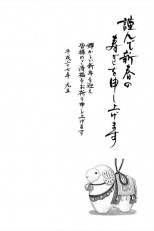 謹んで新春の
寿ぎを申し上げます
輝かしい新年を迎え
皆様のご清福をお祈り申し上げます
平成二十七年 元旦